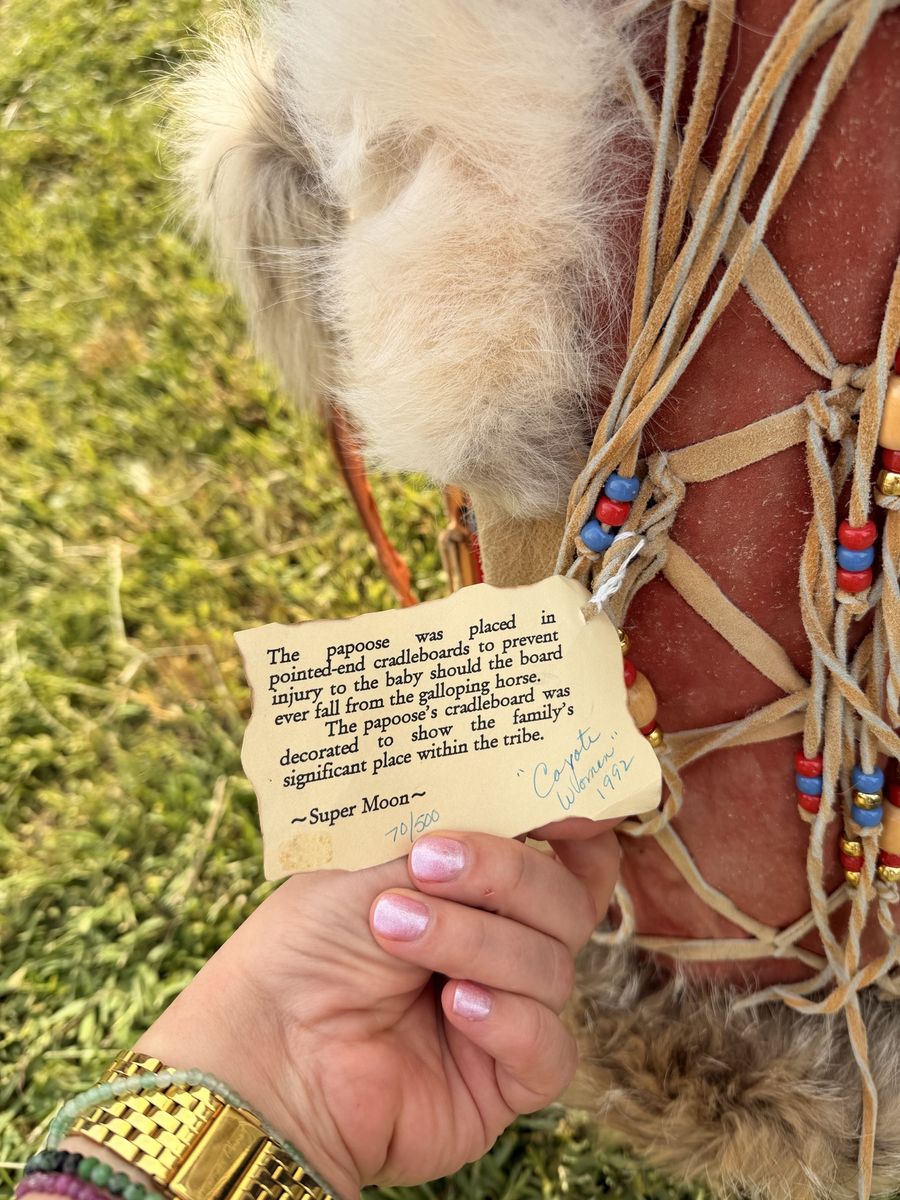 The papoose was placed in
pointed-end cradleboards to prevent
injury to the baby should the board
ever fall from the galloping horse.
The papoose's cradleboard was
decorated to show the family's
significant place within the tribe.
~Super Moon~
70/500
"Coyote
Women"
1992